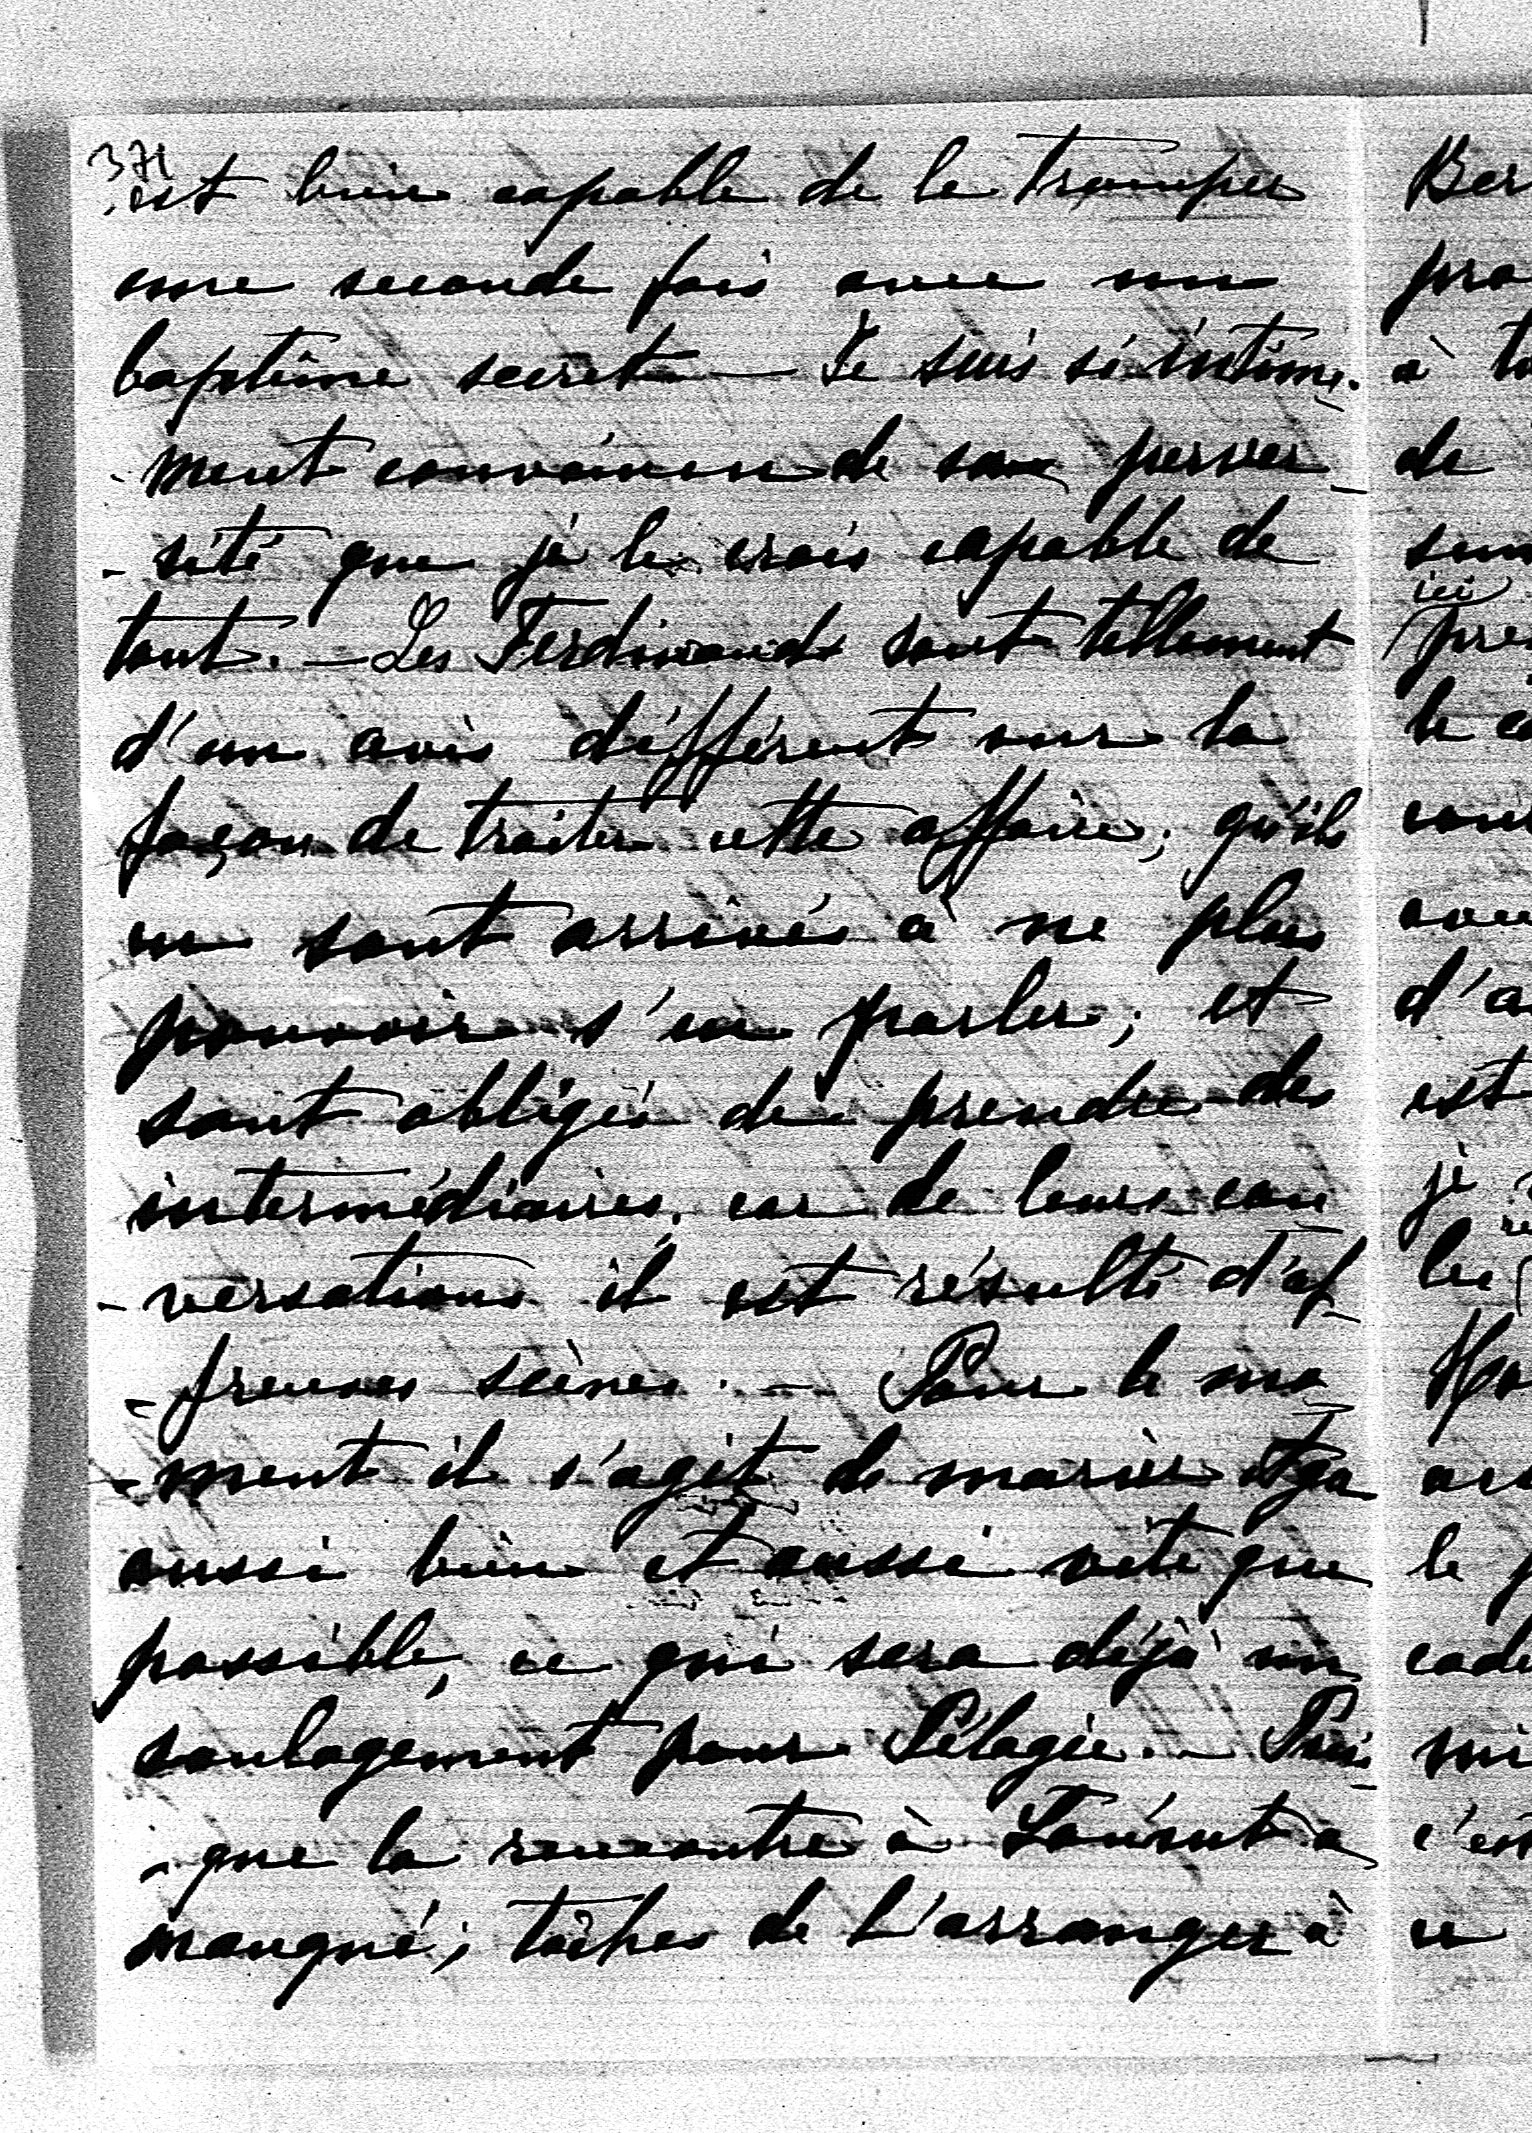 371
est bien capable de le tromper
une seconde fois avec un
baptême secret — Je suis si intime-
-ment convaincu de sa perver-
-sité que je le crois capable de
tout. — Les Ferdinands sont tellement
d'un avis différent sur la
façon de traiter cette affaire; qu'ils
en sont arrivés à ne plus
pouvoir s'en parler; et
sont obligés de prendre des
intermédiaires, car de leurs con
-versations il est résulté d'af-
-freuses scènes. — Pour le mo-
-ment il s'agit de marier
aussi bien et aussi vite que
possible, ce qui sera déjà un
soulagement pour Pélagie. — Puis-
-que la rencontre à a
manqué; tâches de l'arranger à
Ber
pro
à to
de
sum
ici
pre
le c
sont
avec
d'a
est
je
le
le
c'est